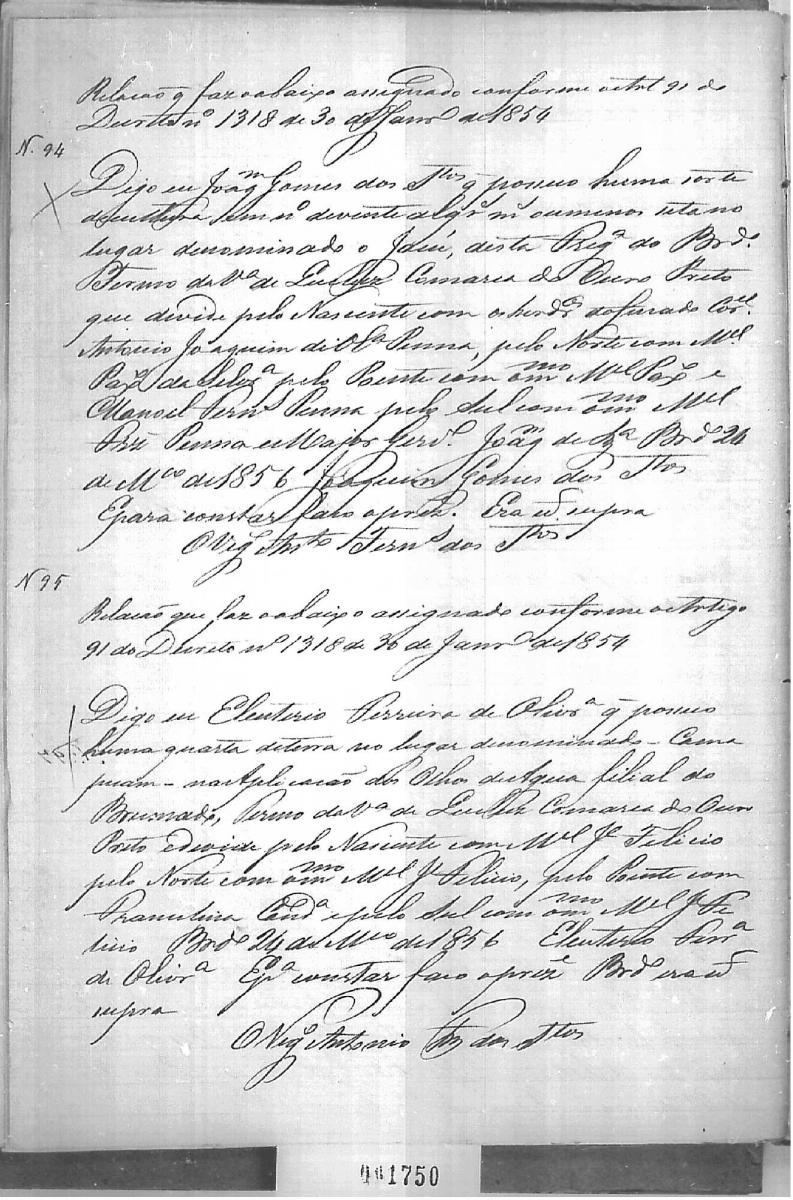 Relação q̃ faz o abaixo assignado conforme o Art 91 do
Decreto nº 1318 de 30 de Janrº de 1854
N. 94
Digo eu Joaqᵐ Gomes dos Stos q̃ possuo huma sorte
de cultura sem nº de vente alqrˢ mˢ ou menos sita no
lugar denominado o Jaú, desta Freg.ª do Brdº
Termo da Vª de Queluz Comarca do Ouro Preto
que devide pelo Nascente com os herdrº do finado Corel
Antonio Joaquim de Olª Penna, pelo Norte com Mel
da pelo Poente com o mmo Mel e
Manoel Fernˢ Penna pelo Sul com o mmo Mel
Penna e Major Joaqᵐ de Brdº 24
de Mço de 1856 Joaquim Gomes dos Stos
E para constar faço o prez.e Era ut supra
O Vigº Antº Fernˢ dos Stos
N 95
Relação que faz o abaixo assignado conforme o Artigo
91 do Decreto nº 1318 de 30 de Janrº de 1854
Digo eu Eleuterio Ferreira de Olivrª q̃ possuo
huma quarta de terra no lugar denominado - Cama
puam - na Aplicação dos Olhos de Agua filial do
Brumado, Termo da Vª de Queluz Comarca do Ouro
Preto e devide pelo Nascente com Mel Je Felicio
pelo Norte com o mmo Mel Je Felicio, pelo Poente com
Francelina Candª e pelo Sul com o mmo Mel Je Fe
licio Brdº 24 de Mço de 1856 Eleuterio Ferrª
de Olivrª E pª constar faço o preze Brdº era ut
supra
O Vigº Antonio Fz dos Stos
001750